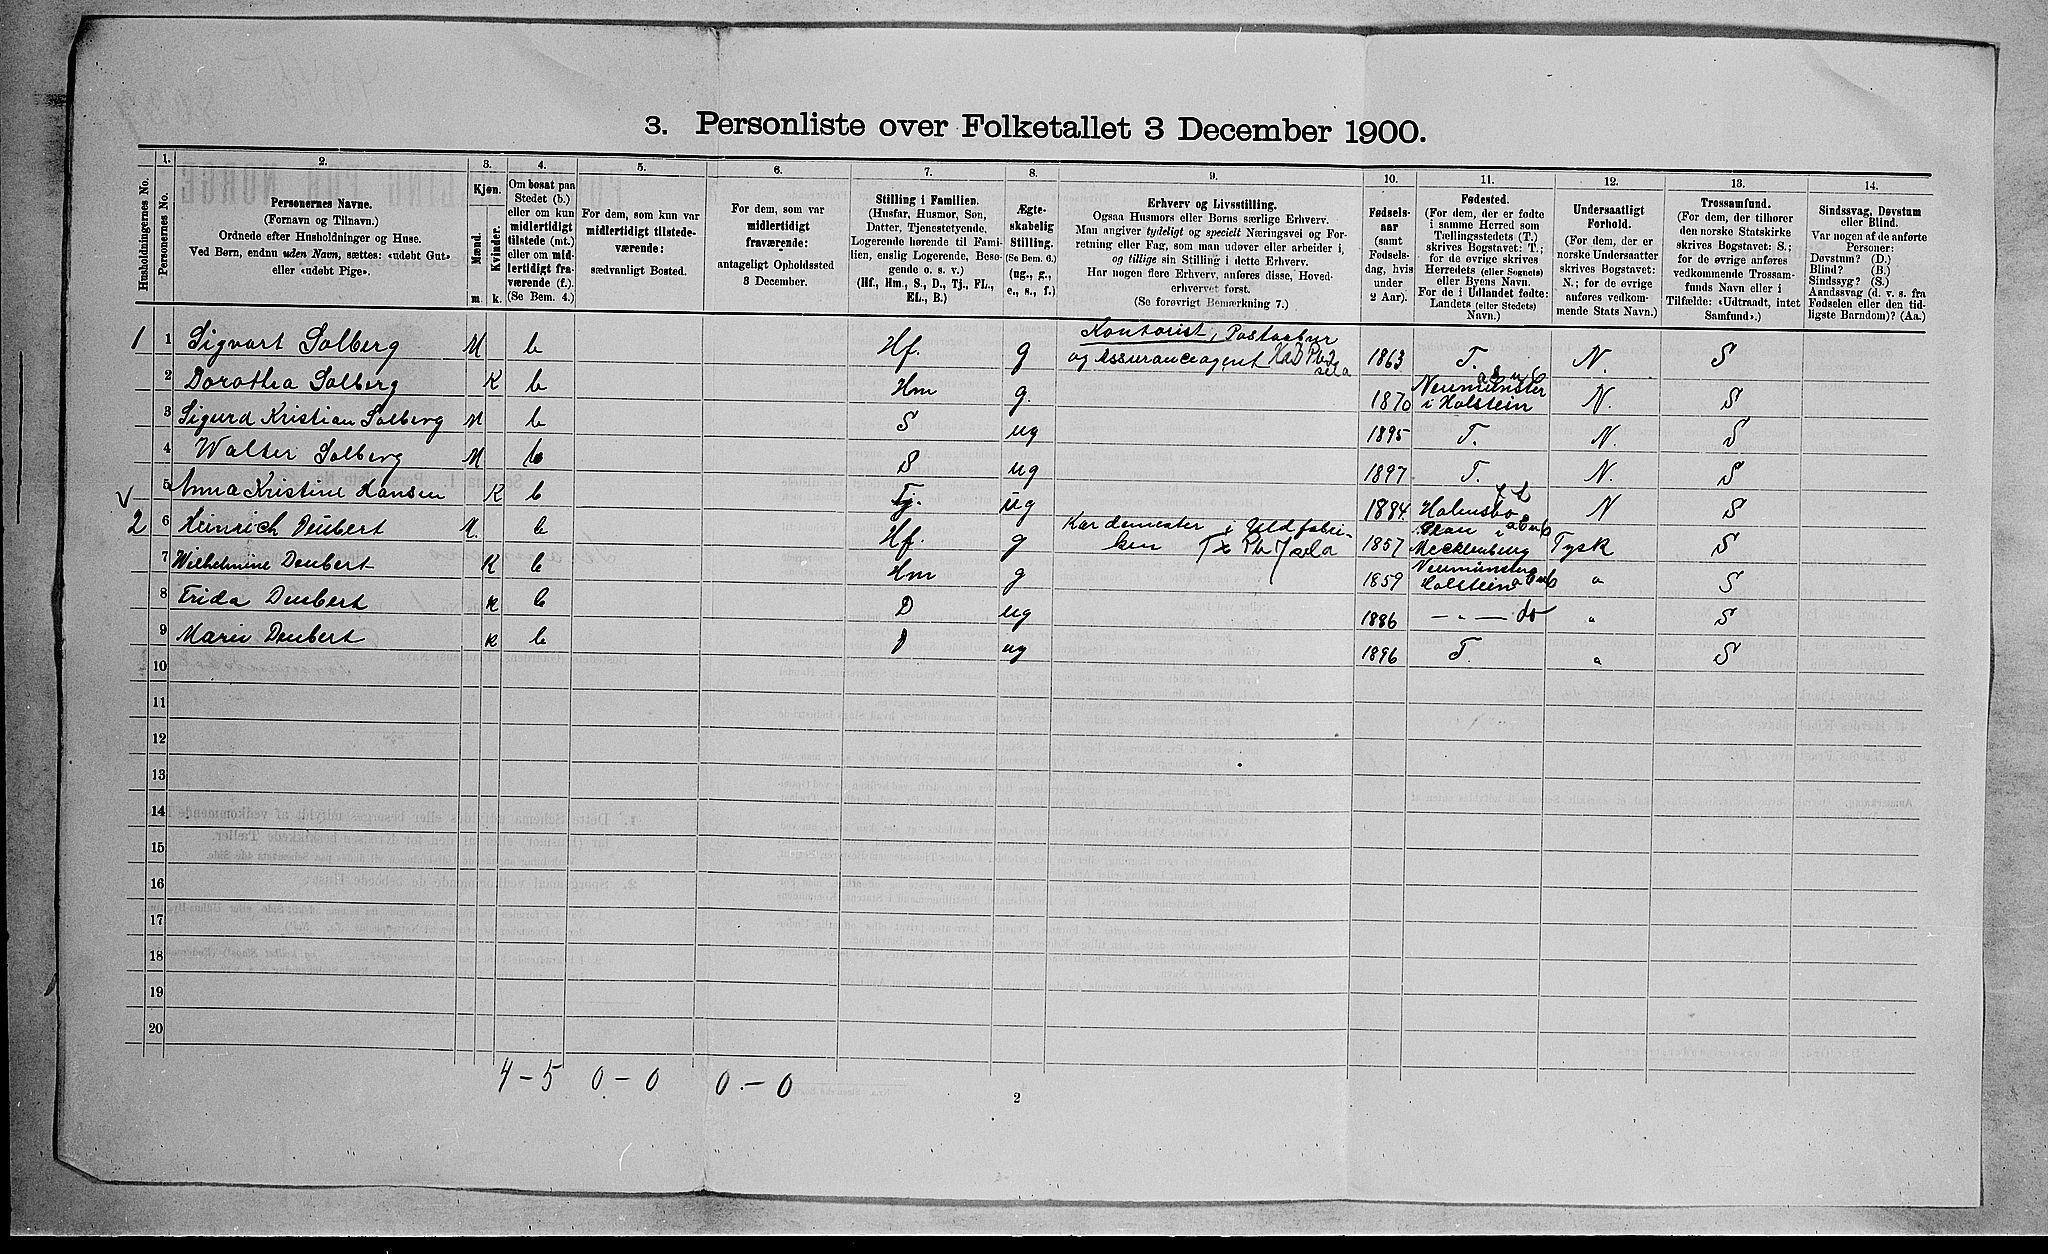 3. Personliste over Folketallet 3 December 1900.
Husholdningernes No.
1.
Personernes No.
2.
Personernes Navne.
(Fornavn og Tilnavn.)
Ordnede efter Husholdninger og Huse.
Ved Børn, endnu uden Navn, sættes: «udøbt Gut»
eller «udøbt Pige».
3.
Kjøn.
Mænd.
Kvinder.
m.
k.
4.
Om bosat paa
Stedet (b.)
eller om kun
midlertidigt
tilstede (mt.)
eller om mid-
lertidigt fra-
værende (f.).
(Se Bem. 4.)
5.
For dem, som kun var
midlertidigt tilstede-
værende:
sædvanligt Bosted.
6.
For dem, som var
midlertidigt
fraværende:
antageligt Opholdssted
3 December.
7.
Stilling i Familien.
(Husfar, Husmor, Søn,
Datter, Tjenestetyende,
Logerende hørende til Fami-
lien, enslig Logerende, Besø-
gende o. s. v.)
(Hf., Hm., S., D., Tj., FL.,
EL., B.)
8.
Ægte-
skabelig
Stilling.
(Se Bem. 6.)
(ug., g.,
e., s., f.)
9.
Erhverv og Livsstilling.
Ogsaa Husmors eller Børns særlige Erhverv.
Man angiver tydeligt og specielt Næringsvei og For-
retning eller Fag, som man udøver eller arbeider i,
og tillige sin Stilling i dette Erhverv.
Har nogen flere Erhverv, anføres disse, Hoved-
erhvervet først.
(Se forøvrigt Bemærkning 7.)
10.
Fødsels-
aar
(samt
Fødsels-
dag, hvis
under
2 Aar).
11.
Fødested.
(For dem, der er fødte
i samme Herred som
Tællingsstedets (T.)
skrives Bogstavet: T.;
for de øvrige skrives
Herredets (eller Sognets)
eller Byens Navn.
For de i Udlandet fødte:
Landets (eller Stedets)
Navn.)
12.
Undersaatligt
Forhold.
(For dem, der er
norske Undersaatter
skrives Bogstavet:
N.; for de øvrige
anføres vedkom-
mende Stats Navn.)
13.
Trossamfund.
(For dem, der tilhører
den norske Statskirke
skrives Bogstavet: S.;
for de øvrige anføres
vedkommende Trossam-
funds Navn eller i
Tilfælde: «Udtraadt, intet
Samfund».)
14.
Sindssvag, Døvstum
eller Blind.
Var nogen af de anførte
Personer:
Døvstum? (D.)
Blind? (B.)
Sindssyg? (S.)
Aandssvag (d. v. s. fra
Fødselen eller den tid-
ligste Barndom)? (Aa.)
1 1 Sigvart Solberg M b Hf. g Kontorist, Postaabner
og Assuranceagent 1863 T. N. S
2 Dorothea Solberg K b Hm g. 1870 Neumünster
i Holstein N. S
3 Sigurd Kristian Solberg M b S ug 1895 T. N. S
4 Walter Solberg M b S ug 1897 T. N. S
5 Anna Kristine Hansen K b Tj. ug 1884 Holmsbo N S
2 6 Heinrich Deubert M. b Hf. g Kardemester i Uldfabri-
ken 1857 i
Mecklenburg Tysk S
7 Wilhelmine Deubert K b Hm g 1859 Neumünster
Holstein " S
8 Frida Deubert K b D ug 1886 — " — do " S
9 Marie Deubert K b D ug 1896 T. " S
10
11
12
13
14
15
16
17
18
19
20
4 - 5 0 - 0 0 - 0
2